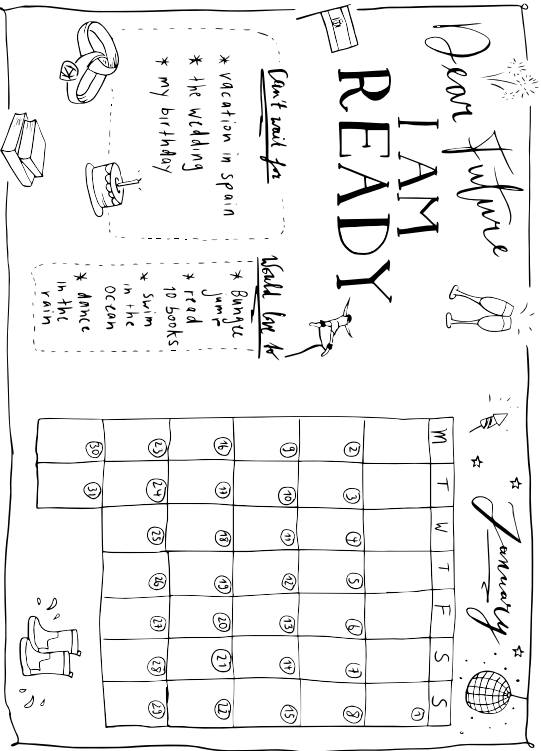 Dear Future
I AM
READY
Can't wait for
* vacation in spain
* the wedding
* my birthday
Would love to
* Bungee
jump
* read
10 books
* swim
in the
ocean
* dance
in the
rain
January
M T W T F S S
1
2 3 4 5 6 7 8
9 10 11 12 13 14 15
16 17 18 19 20 21 22
23 24 25 26 27 28 29
30 31